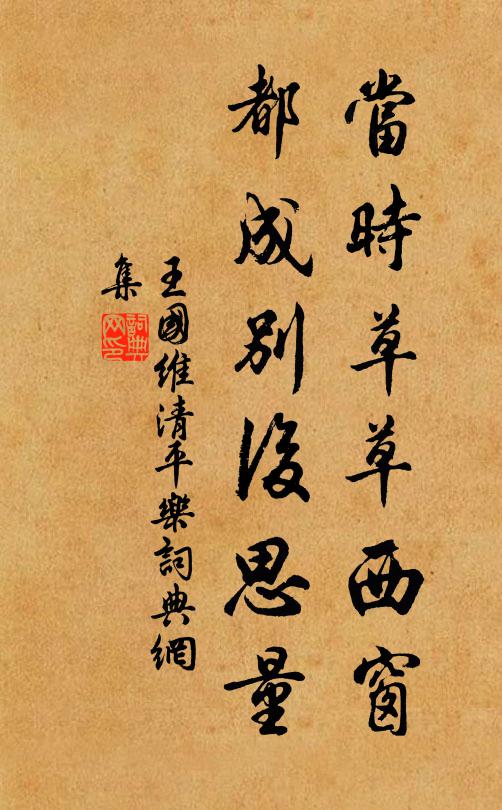 當時草草西窗
都成別後思量
王國維清平樂詞典網
集
詞典网印